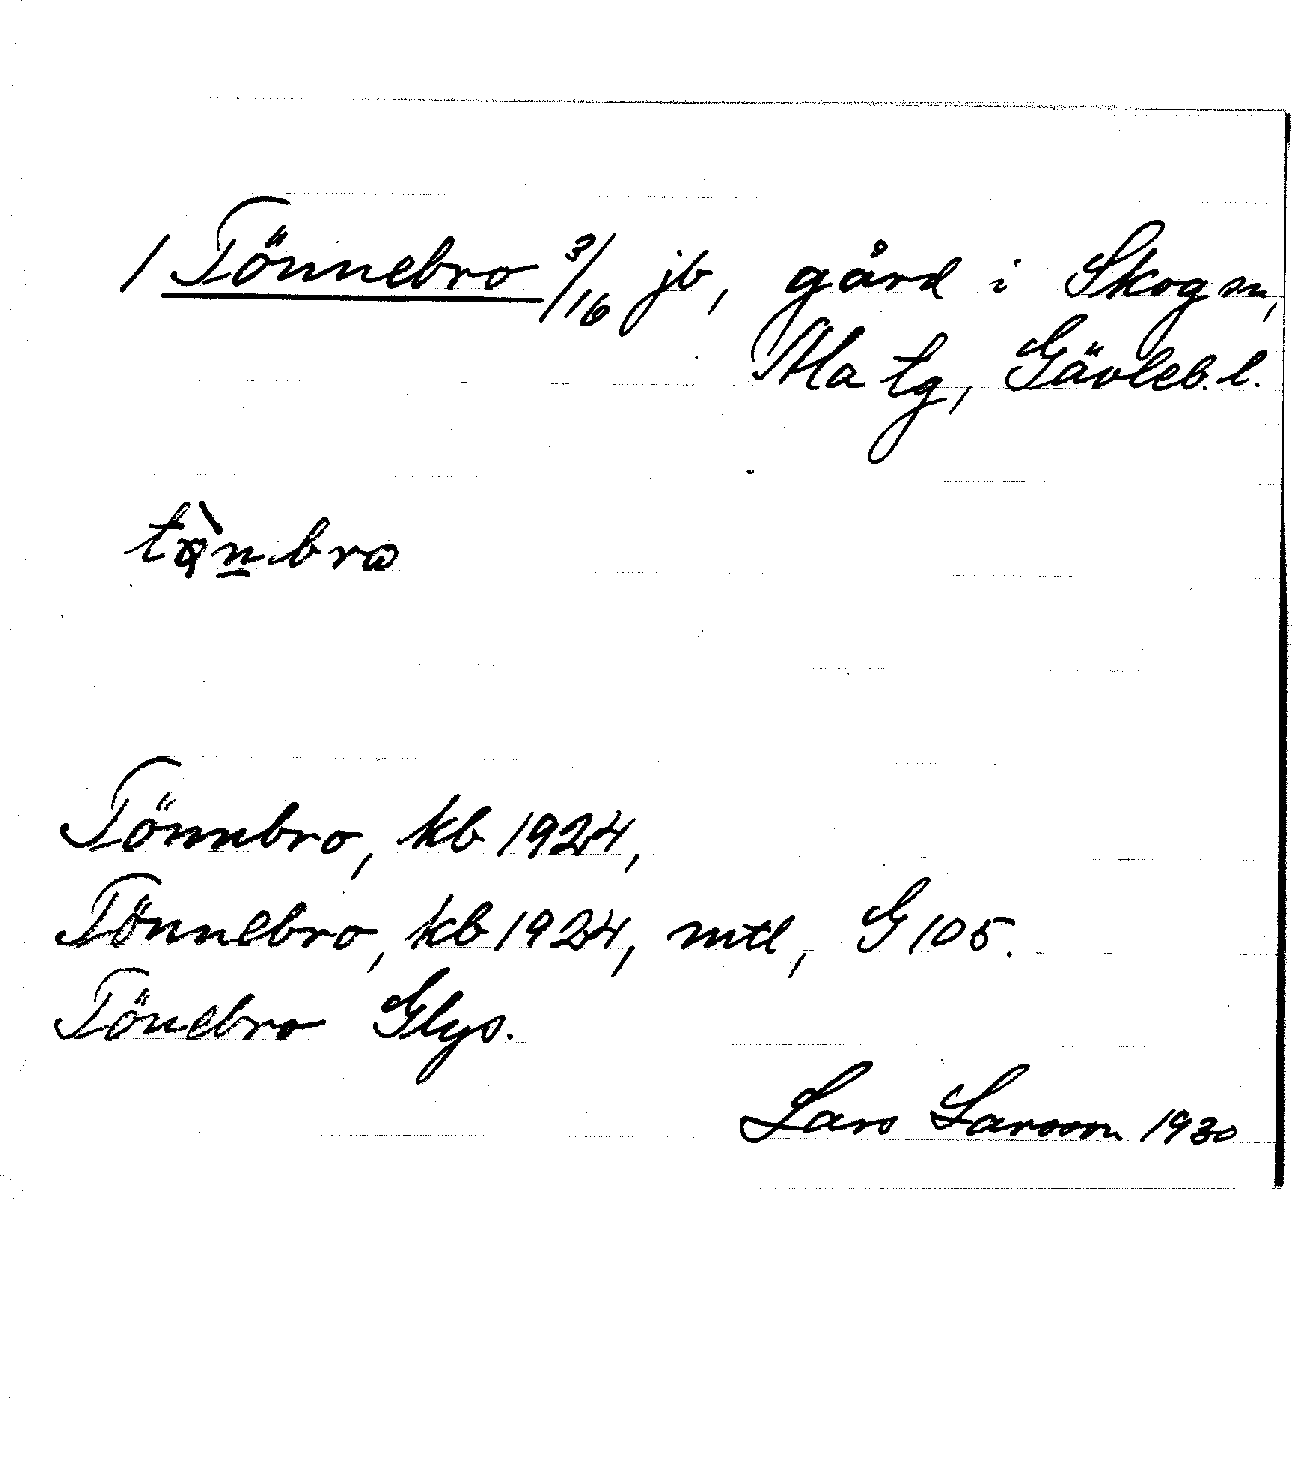 1 Tönnebro 3/16 jb, gård i Skog sn,
Ala tg, Gävleb. l.
Tönnbro, kb 1924,
Tönnebro, kb 1924, mtl, G 105.
Tönebro Glys.
Lars Larsson 1930